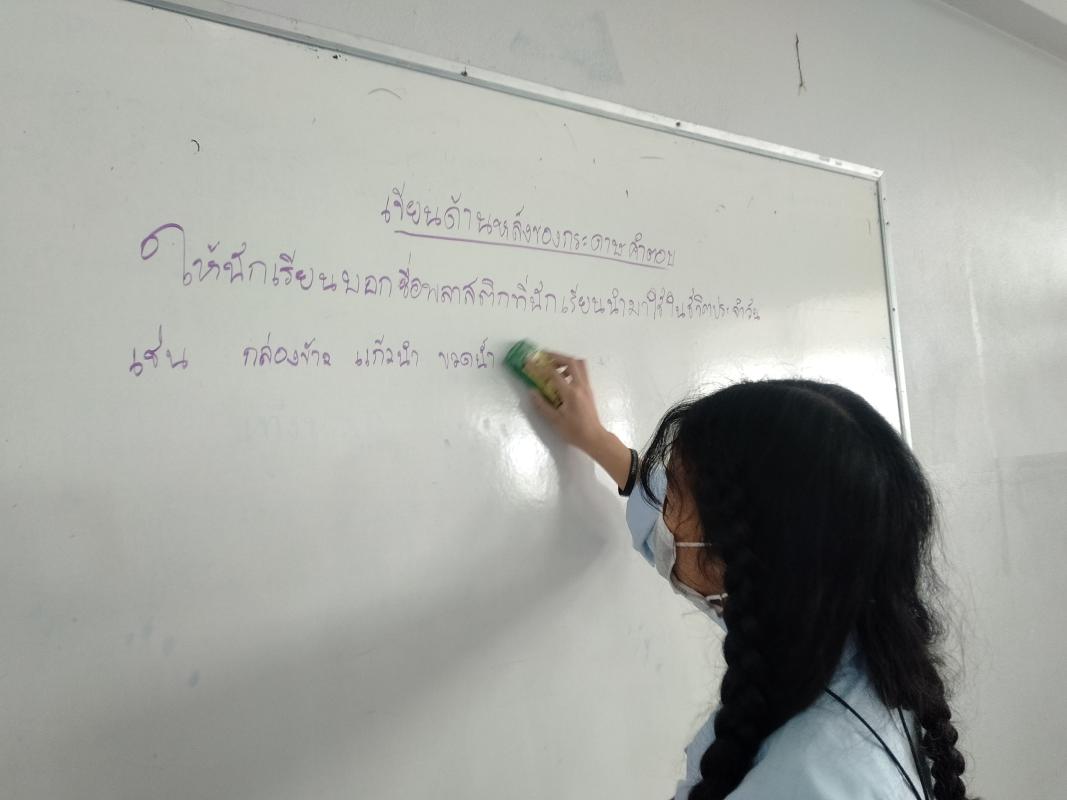 เขียนด้านหลังของกระดาษคำตอบ
ให้นักเรียนบอกชื่อพลาสติกที่นักเรียนนำมาใช้ในชีวิตประจำวัน
เช่น กล่องข้าว แก้วน้ำ ขวดน้ำ